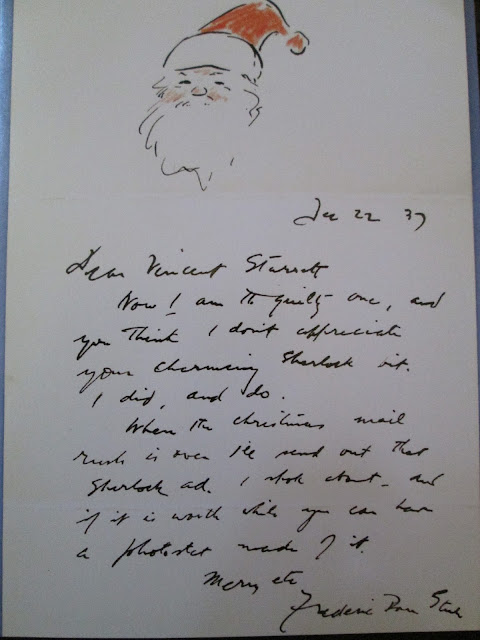 Dec 22 37
Dear Vincent Starrett
Now I am the guilty one, and
you think I don't appreciate
your charming Sherlock bit.
I did, and do.
When the Christmas mail
rush is over I'll send out that
Sherlock ad. I spoke about - and
if it is worth while you can have
a photostat made of it.
Merry etc
Frederic Dorr Steele